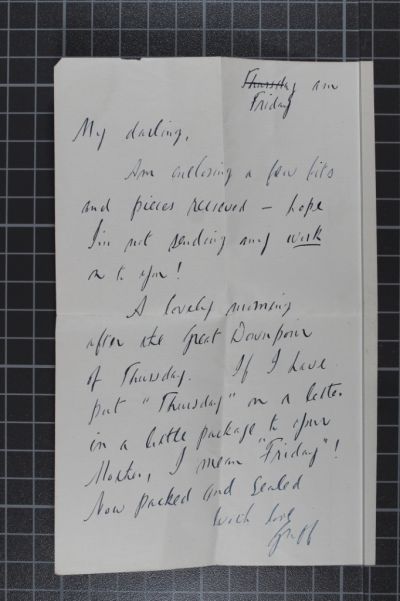 Thursday am
Friday
My darling,
Am enclosing a few bits
and pieces recieved – hope
I'm not sending any work
on to you!
A lovely morning
after the Great Downpour
of Thursday. If I have
put "Thursday" on a letter
in a little package to your
Mother, I mean "Friday"!
Now packed and sealed
with love
Griff